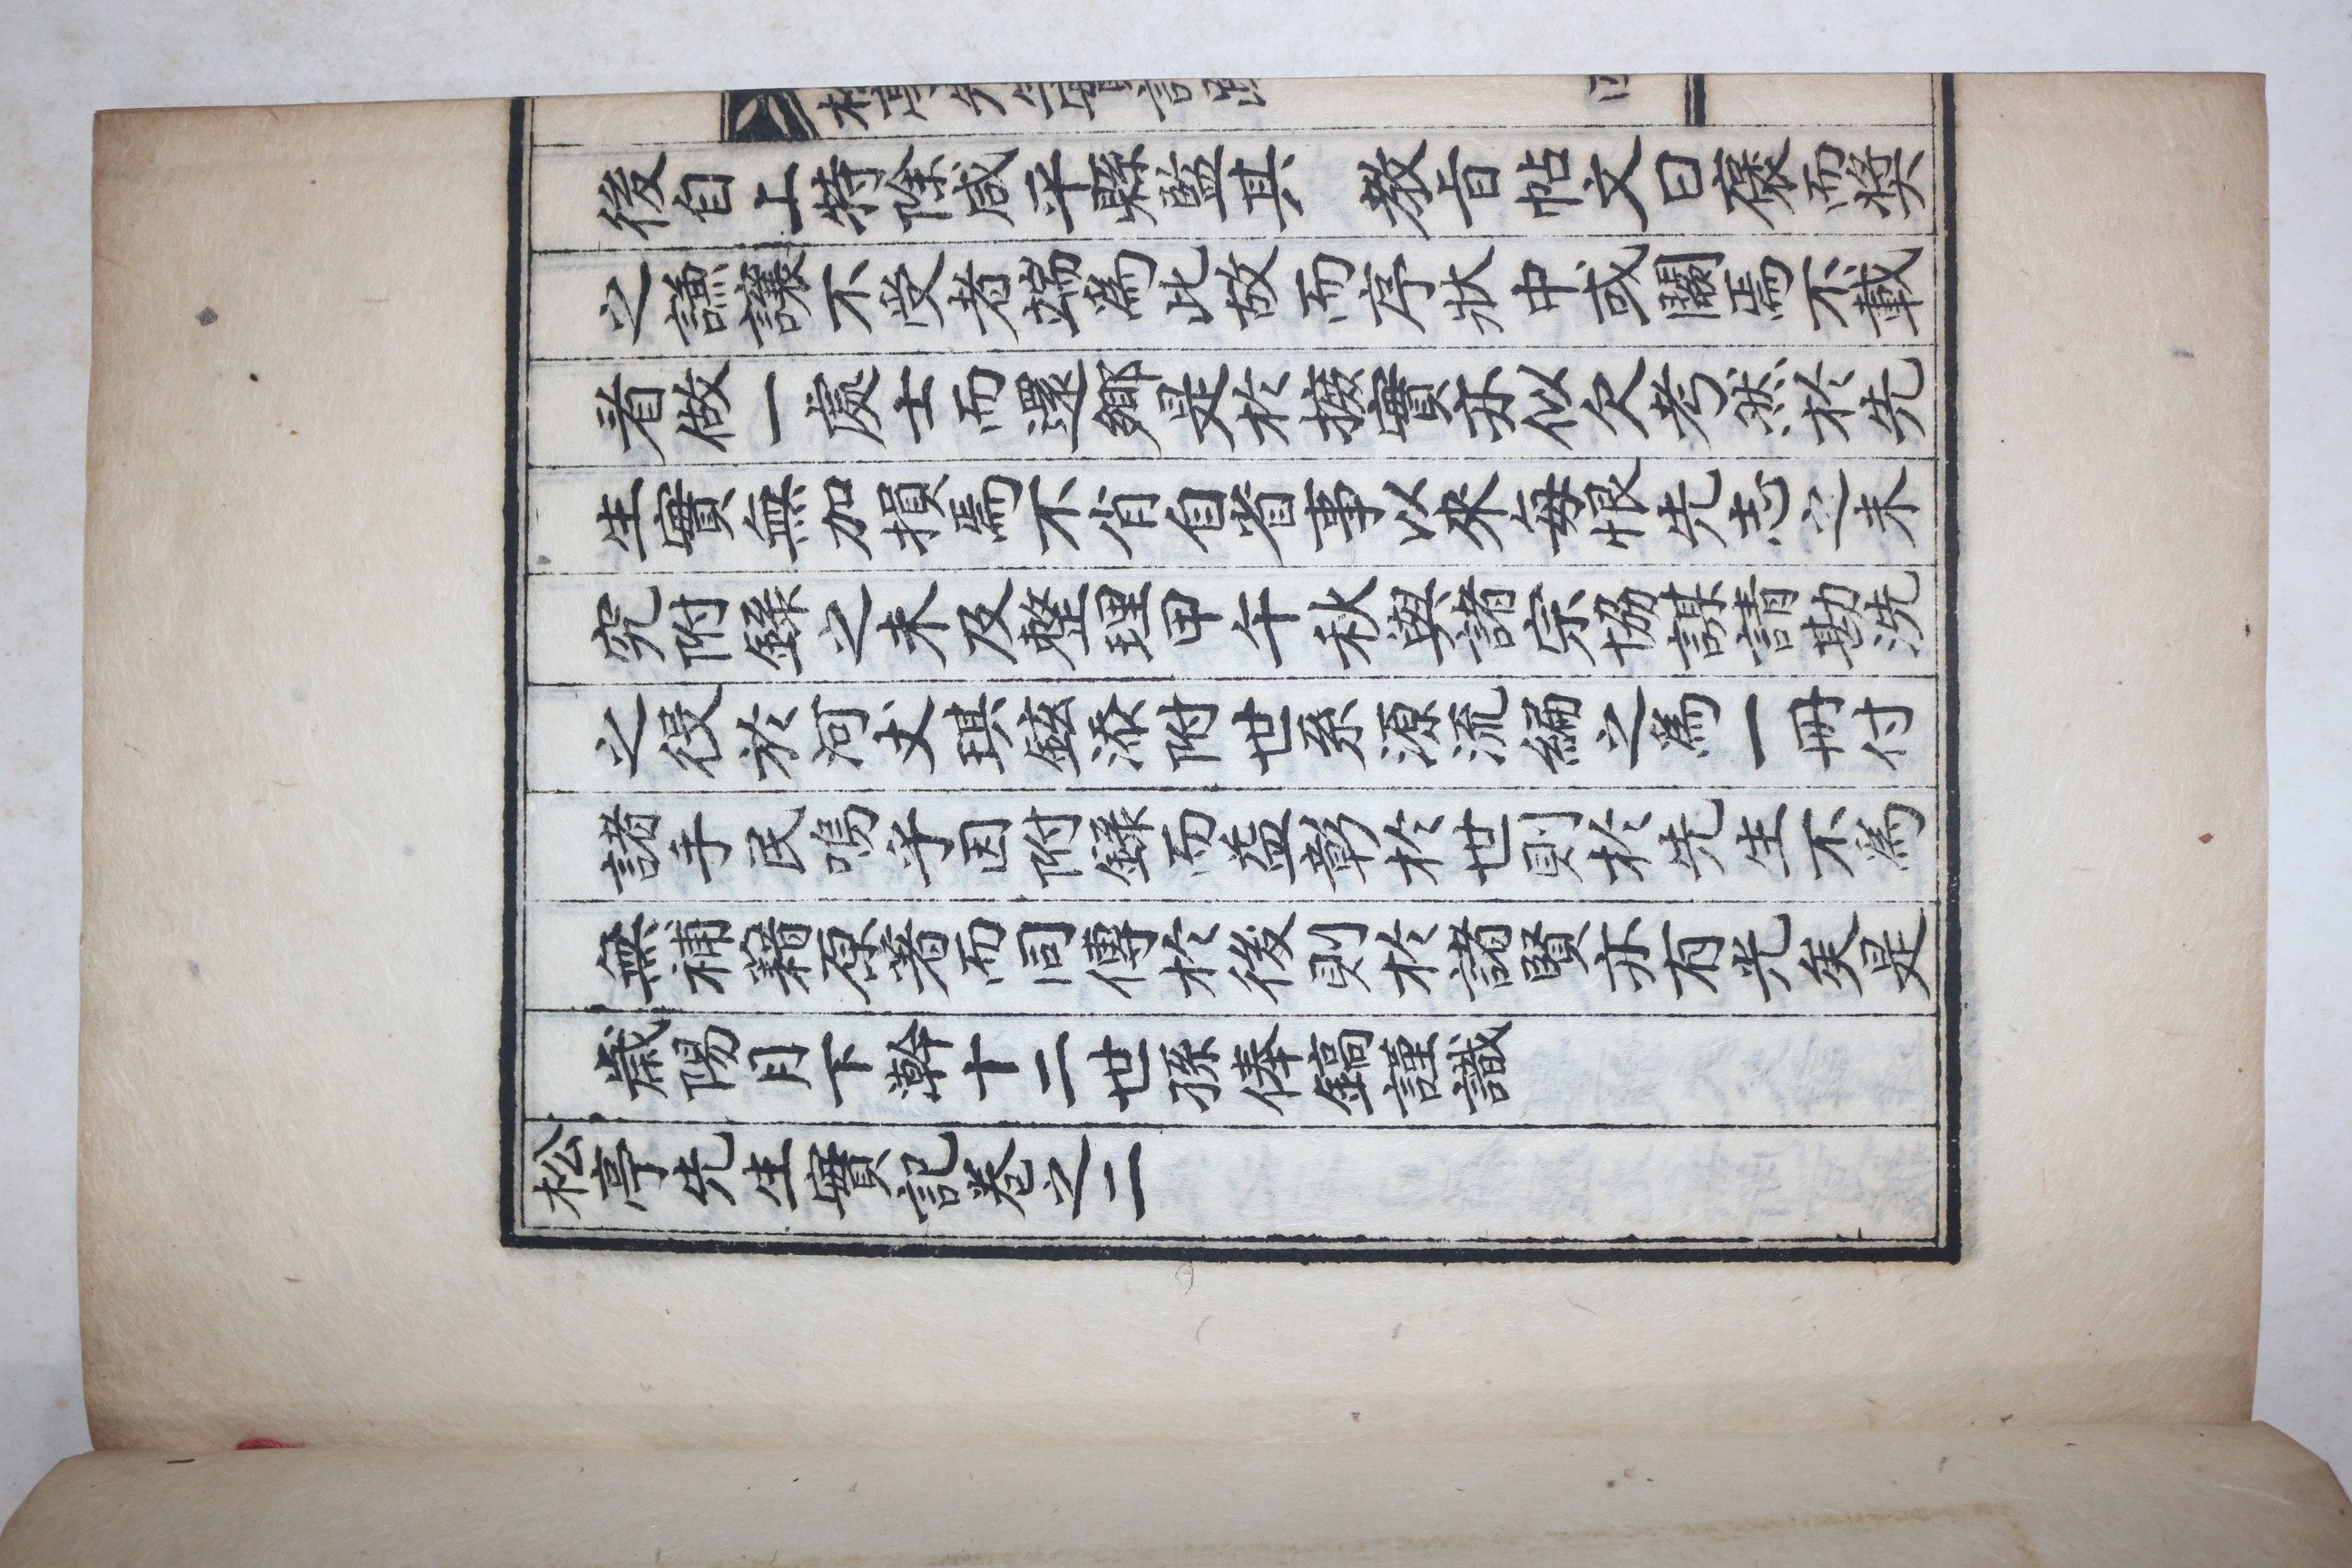 後自上特除咸平縣監其 教旨帖文曰癈而獘
之謙讓不受者端爲此故而序狀中或闕焉不載
着做一處士而還鄉是於摭實亦似欠考然於先
生實無加損焉不肖自省事以來每恨先志之未
究附錄之未及整理甲午秋與諸宗協謀請勘洗
之役於河丈琪鉉添附世系源流編之爲一冊付
諸手民嗚乎因附錄而益彰於世則於先生不爲
無補藉原著而同傳於後則於諸賢亦有光矣是
歲陽月下澣十二世孫俸鎬謹識
松亭先生實記卷之二